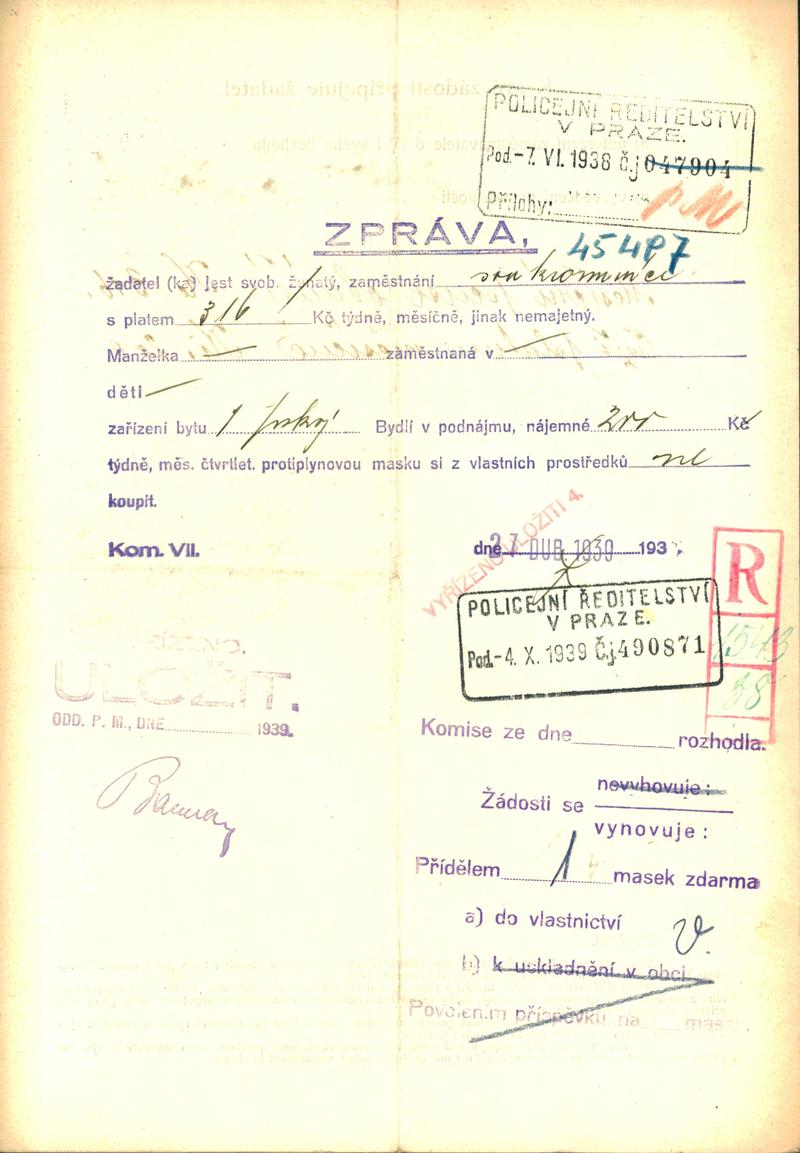 POLICEJNÍ ŘEDITELSTVÍ
V PRAZE.
Pod.-7. VI. 1938 č.j 047904
Přílohy:
ZPRÁVA,
45487
žadatel (ka) jest svob. ženatý, zaměstnání
s platem 316 Kč týdně, měsíčně, jinak nemajetný.
Manželka — zaměstnaná v —
děti —
zařízení bytu 1 Bydlí v podnájmu, nájemné 200 Kč
týdně, měs. čtvrtlet. protiplynovou masku si z vlastních prostředků ne
koupit.
Kom. VII. dne 27 DUB 1939 193
VYŘÍZENO ULOŽITI 4.
R
1543
38
POLICEJNÍ ŘEDITELSTVÍ
V PRAZE.
Pod.-4. X. 1939 Č.j 490871
ULOŽIT.
ODD. P. M., DNE 1939.
Komise ze dne rozhodla.
nevyhovuje:
Žádosti se
vynovuje:
Přídělem 1 masek zdarma
a) do vlastnictví
b) k uskladnění v obci
Povolením příspěvku na mas